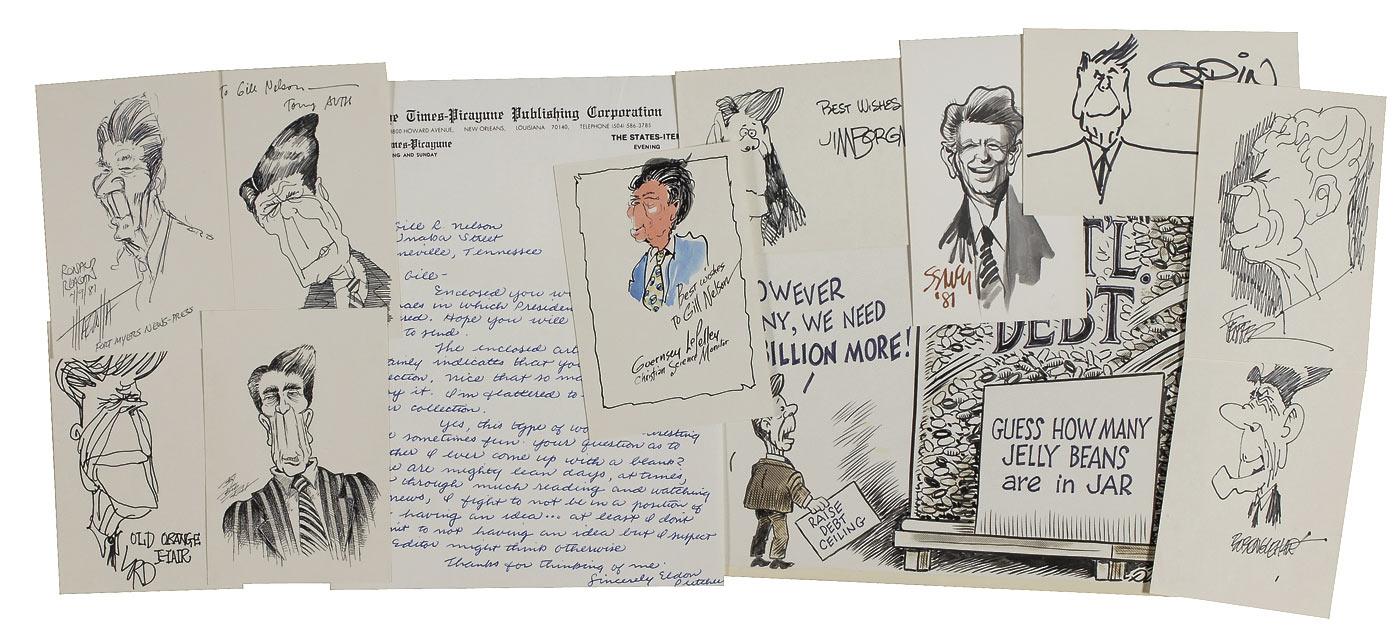 RONALD
REAGON
7/7/81
FORT MYERS NEWS-PRESS
To Gill Nelson
Tony AUTH
OLD ORANGE
HAIR
Times-Picayune Publishing Corporation
3800 HOWARD AVENUE, NEW ORLEANS, LOUISIANA 70140, TELEPHONE (504) 586-3785
mes-Picayune
NG AND SUNDAY
THE STATES-ITE
EVENING
Gill R. Nelson
Street
neville, Tennessee
Gill-
Enclosed you w
in which Presiden
sed. Hope you will
to send.
The enclosed art
ainly indicates that you
ection. Nice that so ma
y it. I'm flattered to
r collection.
Yes, this type of wo eresting
sometimes fun. Your question as to
ther I ever come up with a blank?
e are mighty lean days, at times,
through much reading and watching
news, I fight to not be in a position of
having an idea... at least I don't
mit to not having an idea but I suspect
Editor might think otherwise
Thanks for thinking of me.
Sincerely Eldon
Pletcher
Best wishes
To Gill Nelson
Guernsey LePelley
Christian Science Monitor
BEST WISHES
JIM BORGM
OWEVER
NY, WE NEED
BILLION MORE!
RAISE
DEBT
CEILING
'81
T'L.
DEBT
GUESS HOW MANY
JELLY BEANS
are in JAR